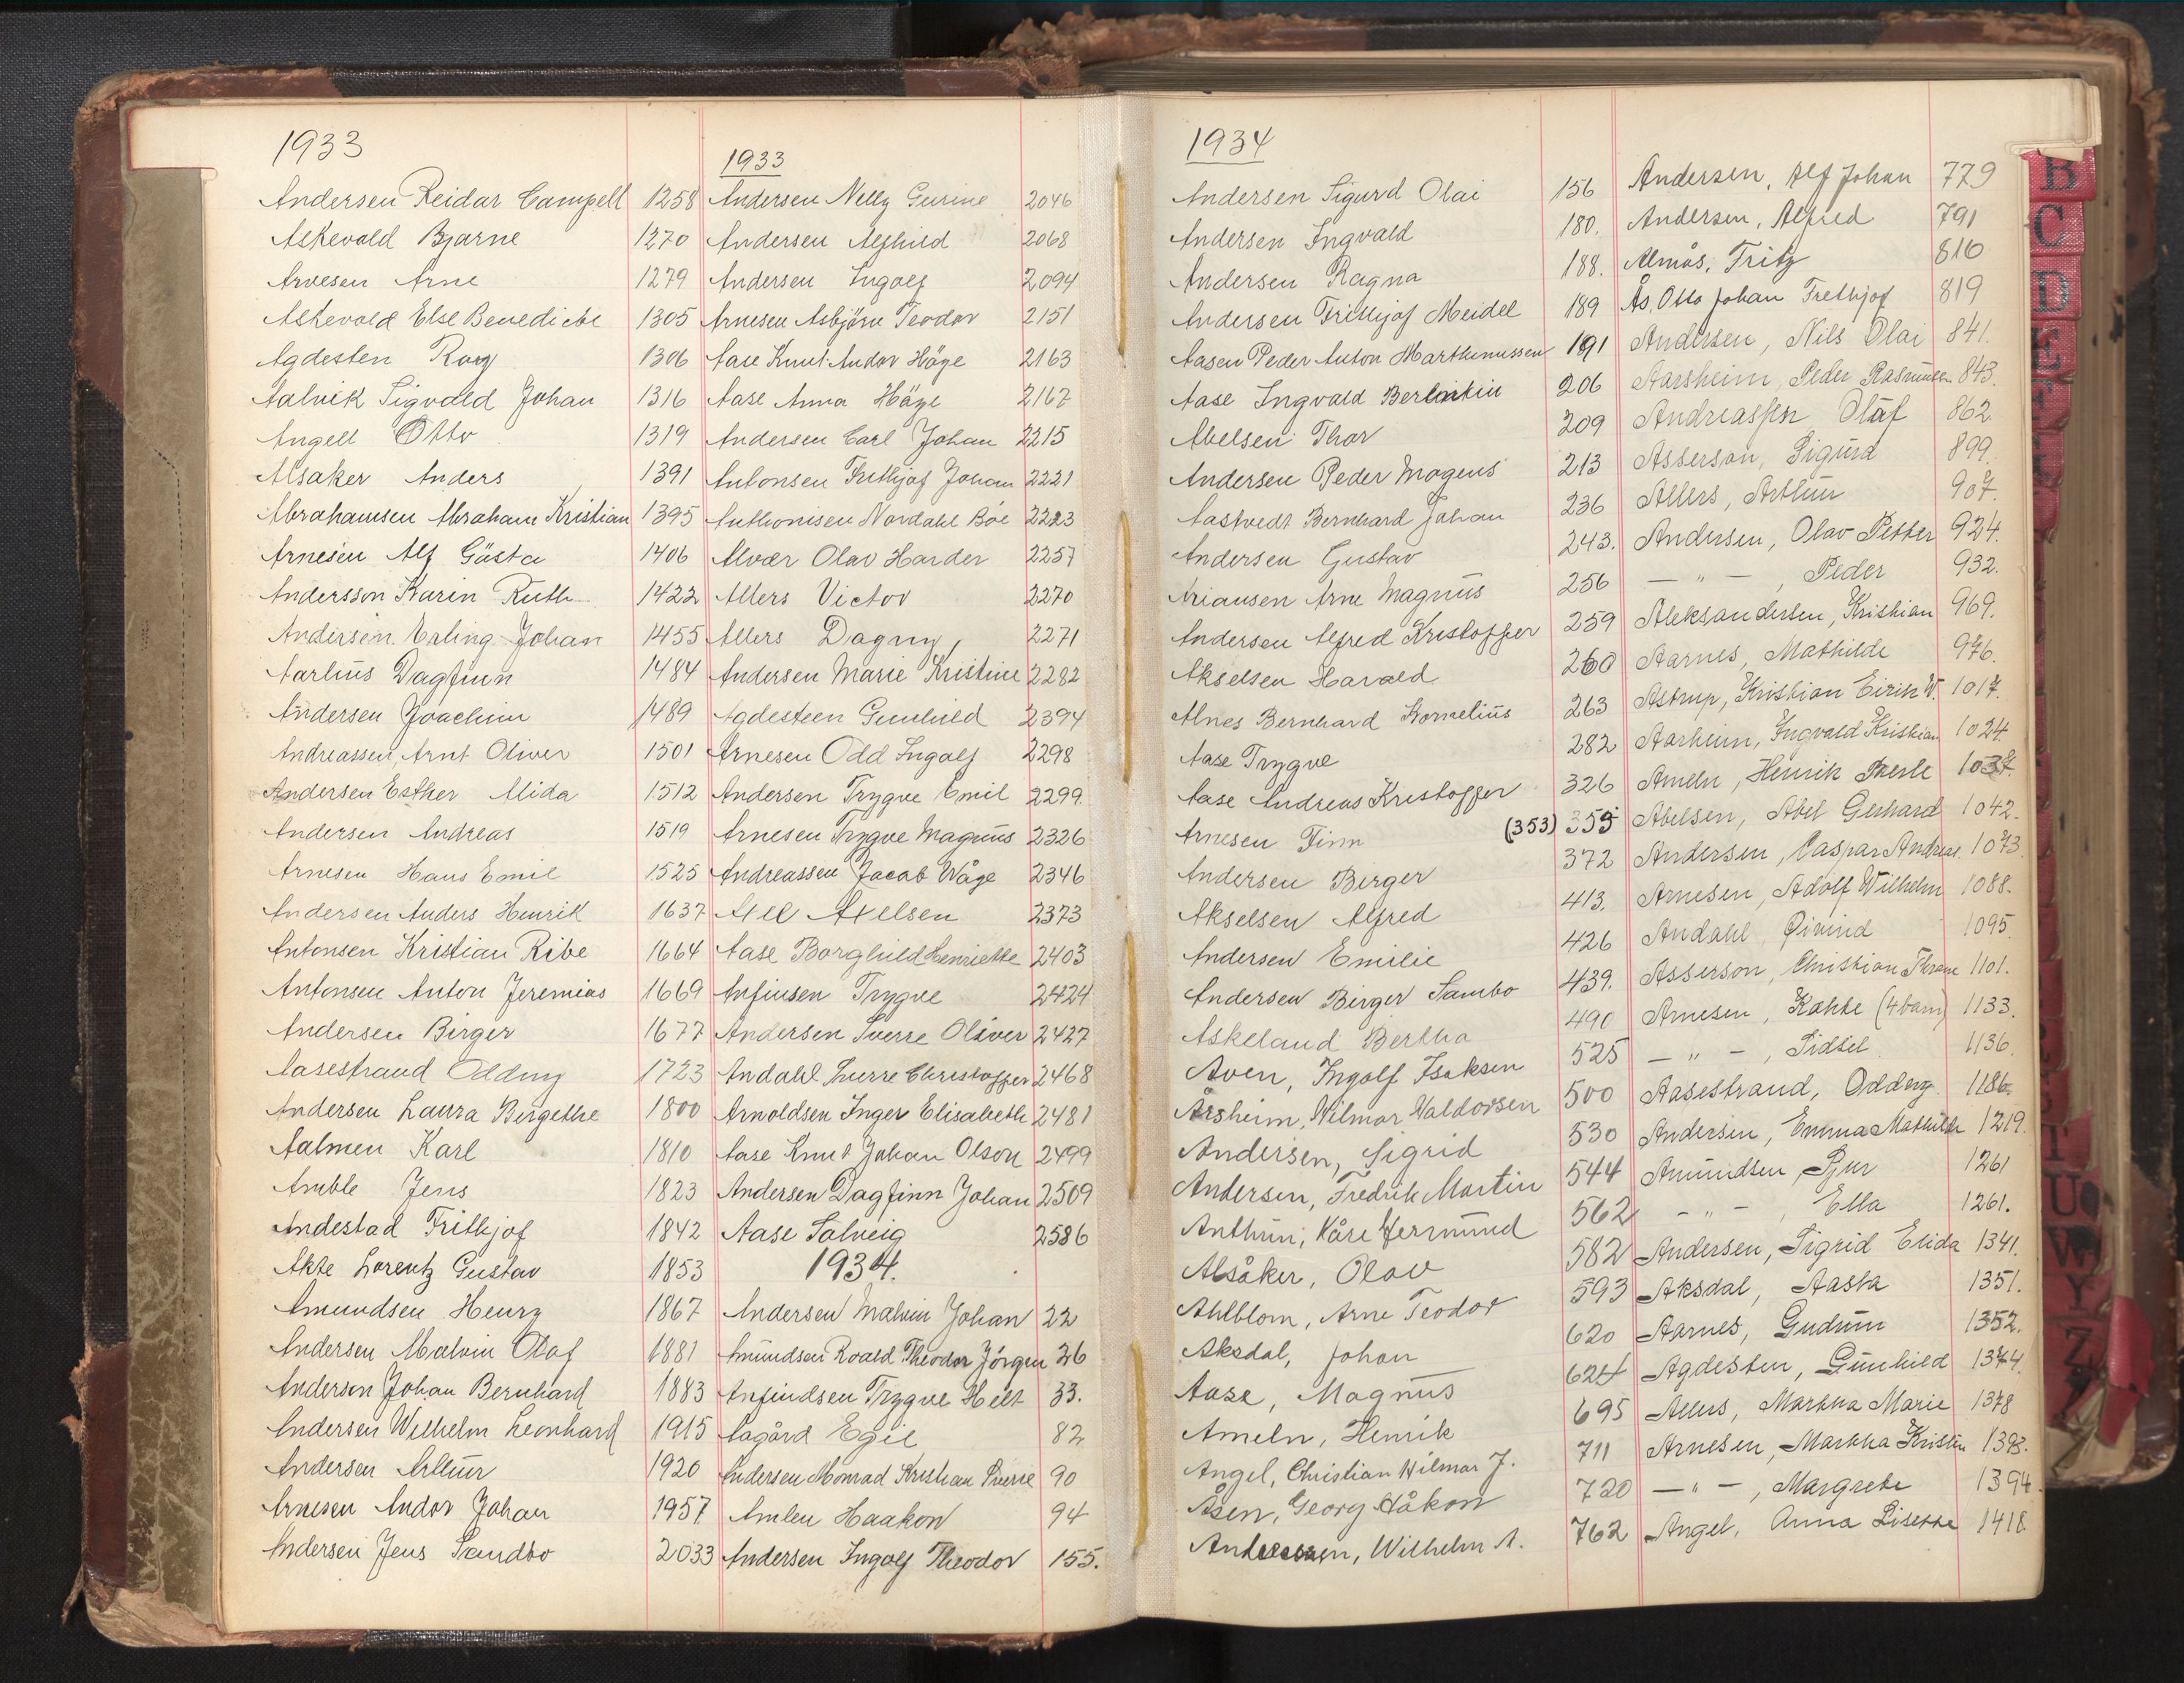 1933
Andersen Reidar Campell 1258
Askevold Bjarne 1270
Arvesen Arne 1279
Askevold Else Benedicte 1305
Agdesten Roy 1306
Aalvik Sigvald Johan 1316
Angell Otto 1319
Alsaker Anders 1391
Abrahamsen Abraham Kristian 1395
Arnesen Alf Gösta 1406
Andersson Karin Ruth 1422
Andersen Erling Johan 1455
Aarlius Dagfinn 1484
Andersen Joachim 1489
Andreassen, Arnt Oliver 1501
Andersen Esther Alida 1512
Andersen Andreas 1519
Arnesen Hans Emil 1525
Andersen Anders Henrik 1637
Antonsen Kristian Ribe 1664
Antonsen Anton Jeremias 1669
Andersen Birger 1677
Aasestrand Oddny 1723
Andersen Laura Birgethe 1800
Aalmen Karl 1810
Amble Jens 1823
Andestad Frithjof 1842
Akte Lorentz Gustav 1853
Amundsen Henry 1867
Andersen Malvin Olaf 1881
Anderson Johan Bernhard 1883
Andersen Wilhelm Leonhard 1915
Andersen Arthur 1920
Arnesen Andor Johan 1957
Andersen Jens Sandbo 2033
1933
Andersen Nelly Gurine 2046
Andersen Alfhild 2068
Andersen Ingolf 2094
Arnesen Asbjörn Teodor 2151
Aase Knut Andor Häge 2163
Aase Anna Häge 2167
Andersen Carl Johan 2215
Antonsen Frithjof Johan 2221
Anthonisen Nordahl Böe 2223
Alvær Olav Harder 2257
Allers Victor 2270
Allers Dagny 2271
Andersen Marie Kristine 2282
Agdesteen Gunhild 2394
Arnesen Odd Ingolf 2298
Andersen Trygve Emil 2299
Arnesen Trygve Magnus 2326
Andreassen Jacob Wåge 2346
Axel Axelsen 2373
Aase Borghild Henriette 2403
Anfinsen Trygve 2424
Andersen Sverre Oliver 2427
Andahl Sverre Christoffer 2468
Arnoldsen Inger Elisabeth 2481
Aase Knut Johan Olson 2499
Andersen Dagfinn Johan 2509
Aase Solveig 2586
1934.
Andersen Malvin Johan 22
Amundsen Roald Theodor Jörgen 26
Anfindsen Trygve Helt 33.
Aagård Egil 82
Andersen Monrad Kristian Sverre 90
Amlen Haakon 94
Andersen Ingolf Theodor 155.
1934
Andersen Sigurd Olai 156
Andersen Ingvald 180.
Andersen Ragna 188.
Andersen Frithjof Meidel 189
Aasen Peder Anton Marthinussen 191
Aase Ingvald Berentin 206
Abelsen Thor 209
Andersen Peder Mogens 213
Aastvedt Bernhard Johan 236
Andersen Gustav 243.
Ariansen Arne Magnus 256
Andersen Alfred Kristoffer 259
Akselsen Harald 260
Alnes Bernhard Kornelius 263
Aase Trygve 282
Aase Andreas Kristoffer 326
Arnesen Finn (353) 355
Andersen Birger 372
Akselsen Alfred 413.
Andersen Emilie 426
Andersen Birger Sambo 439.
Askeland Bertha 490
Aven, Ingolf Isaksen 525
Årsheim, Wilmar Waldorsen 500
Andersen, Sigrid 530
Andersen, Fredrik Martin 544
Anthun, Kåre Hermund 562
Alsåker, Olav 582
Ahlblom, Arne Teodor 593
Aksdal, Johan 620
Aase, Magnus 624
Ameln, Henrik 695
Angel, Christian Wilmar J. 711
Åsen, Georg Håkon 720
Andreassen, Wilhelm A. 762
Andersen, Alf Johan 779
Andersen, Alfred 791
Almås, Fritz 816
Ås, Otto Johan Frethjof 819
Andersen, Nils Olai 841.
Aarsheim, Peder Rasmussen 843.
Andreassen Olaf 862
Asserson, Sigurd 899.
Allers, Arthur 907.
Andersen, Olav Petter 924.
— " — , Peder 932.
Aleksandersen, Kristian 969.
Aarnes, Mathilde 976.
Astrup, Kristian Eirik W. 1017.
Aarheim, Ingvald Kristian 1024
Ameln, Henrik Sverle 1037.
Abelsen, Abel Gerhard 1042.
Andersen, Caspar Andreas 1073
Arnesen, Adolf Wilhelm 1088.
Andahl, Øivind 1095
Asserson, Christian Thrane 1101.
Arnesen, Kathe (4 barn) 1133.
— " — , Sidsel 1136.
Aasestrand, Oddny 1186
Andersen, Emma Mathilde 1219.
Amundsen, Sjur 1261
— " — , Ella 1261.
Andersen, Sigrid Elida 1341.
Aksdal, Aasta 1351.
Aarnes, Gudrun 1352.
Agdesten, Gunhild 1374.
Allers, Martha Marie 1378
Arnesen, Martha Kristin 1393.
— " — , Margrete 1394
Angel, Anna Lisette 1418
B
C
D
E
F
T
U
W
Y
Z